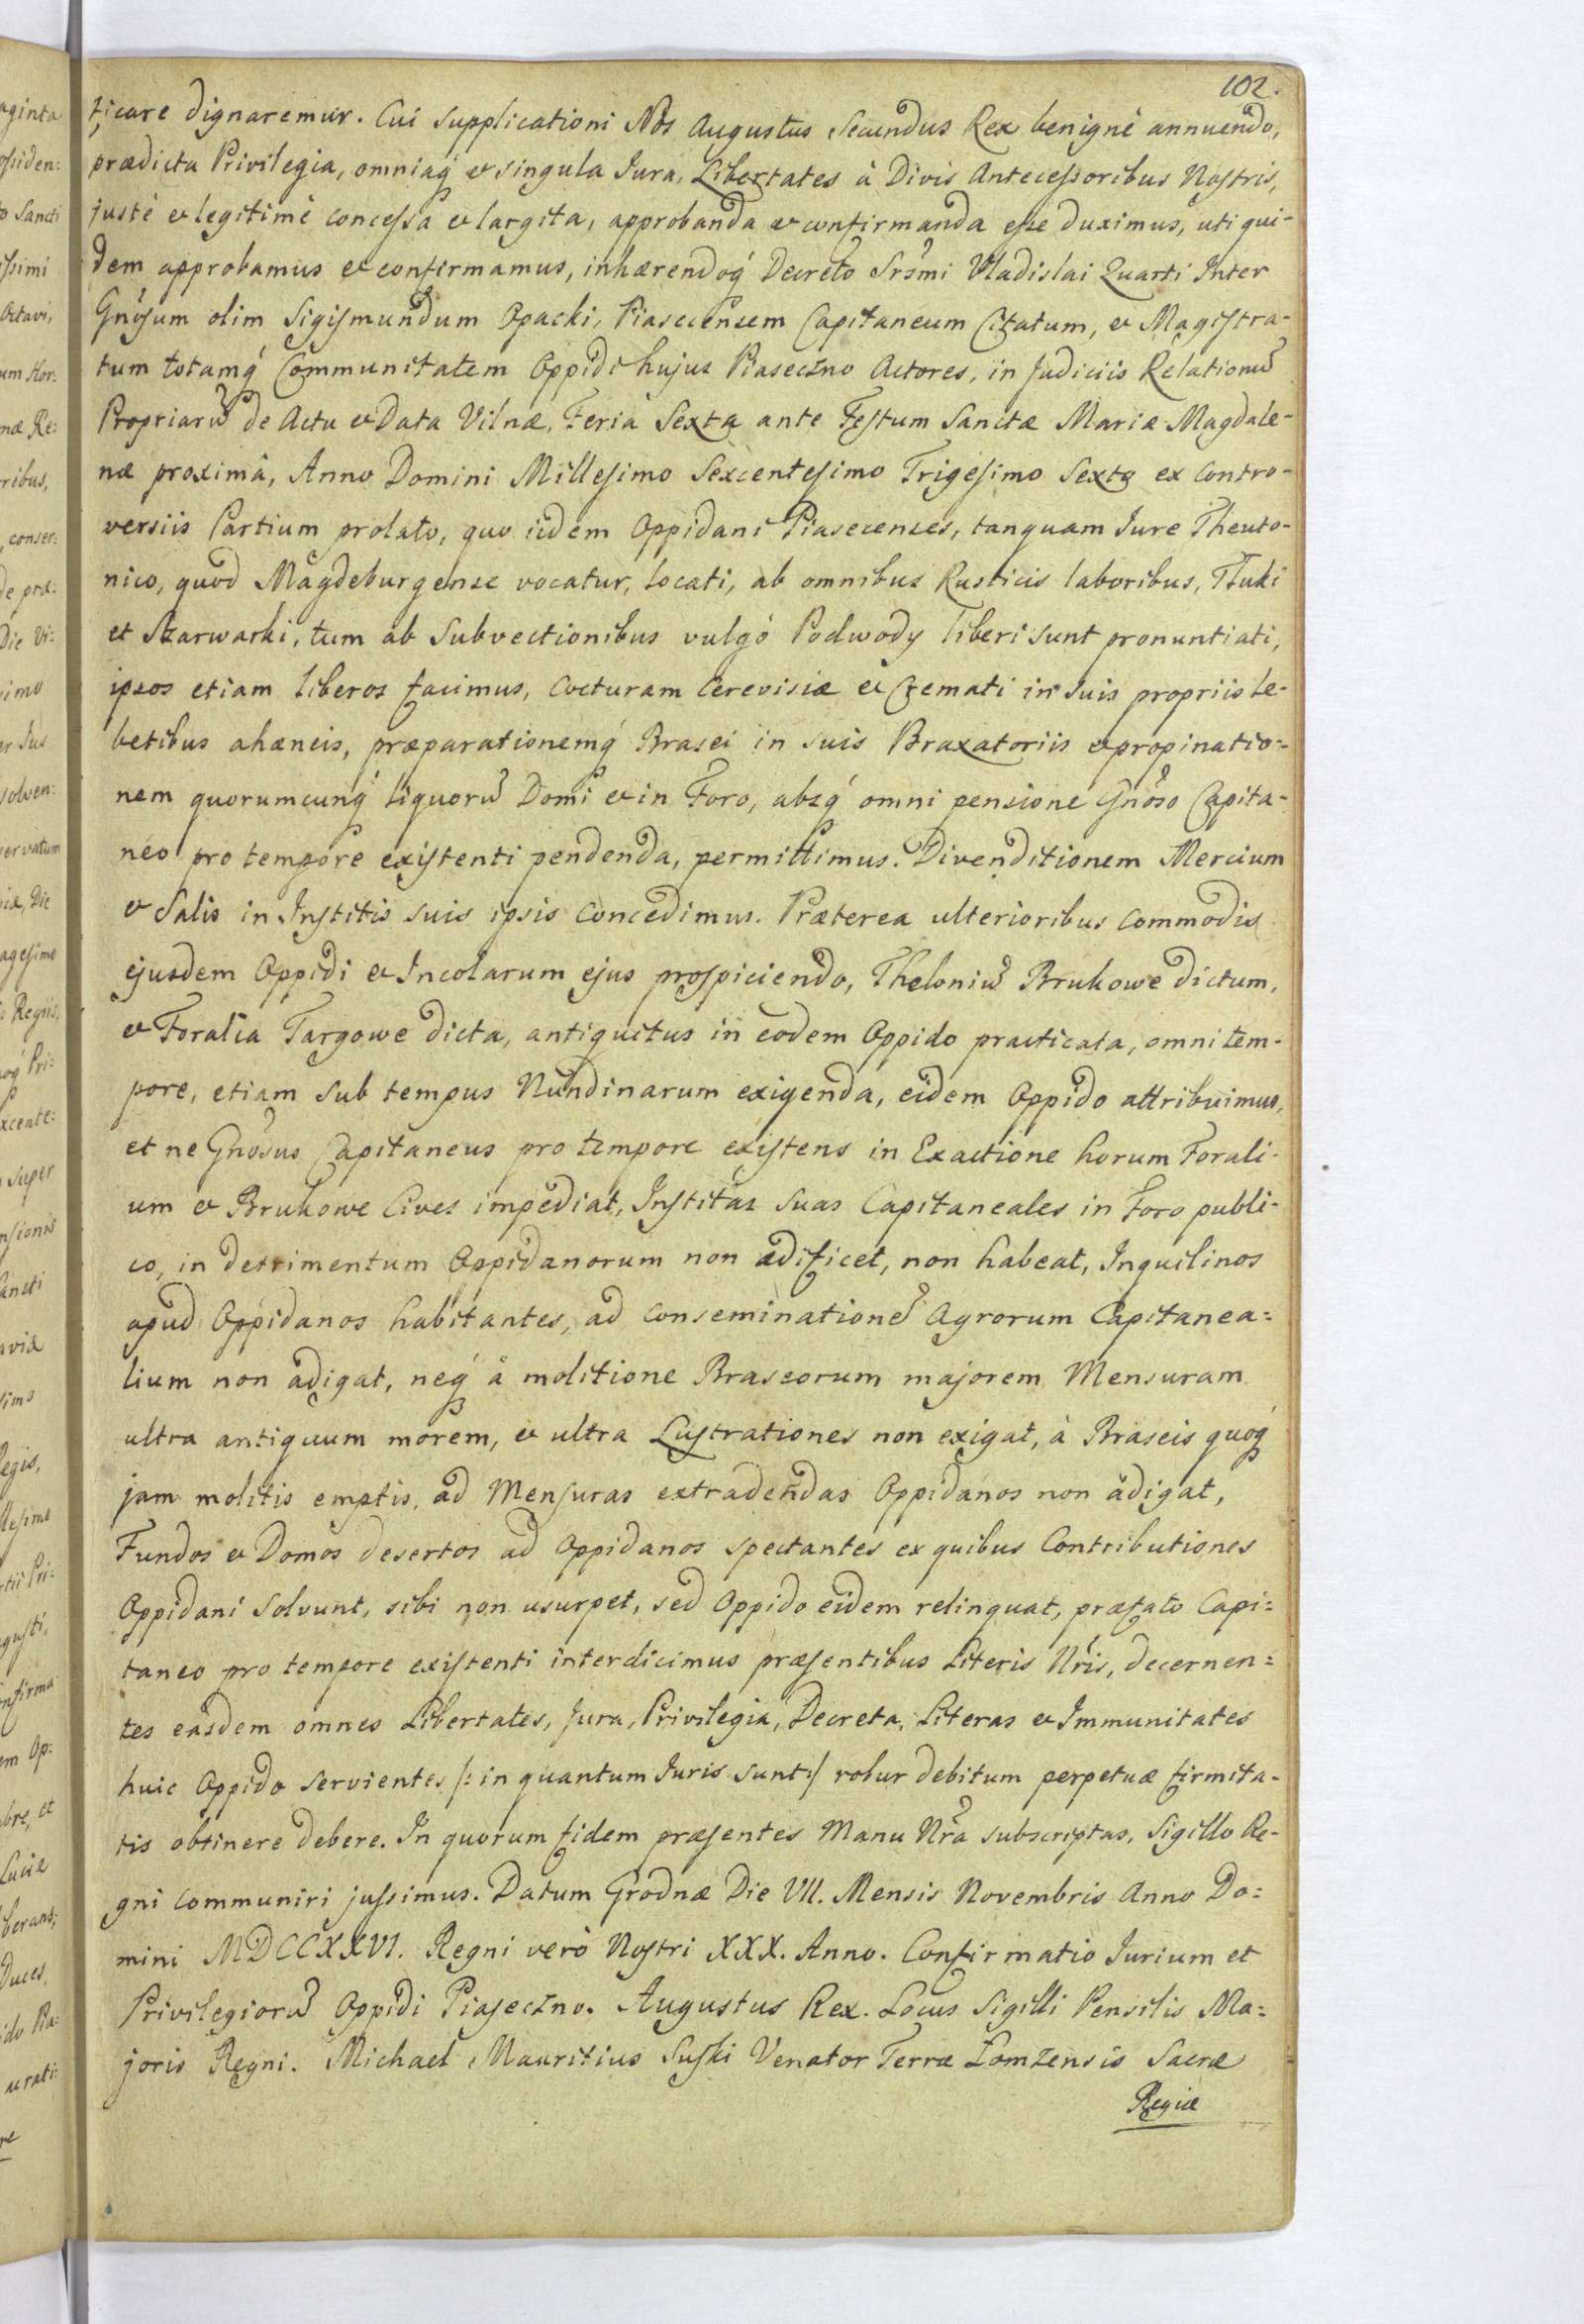 102.
ficare dignaremur. Cui supplicationi Nos Augustus Secundus Rex benignè annuendo,
prædicta Privilegia, omniaq́ & singula Jura, Libertates à Divis Antecessoribus Nostris,
justè & legitimè concessa & largita, approbanda & confirmanda esse duximus, uti qui-
dem approbamus & confirmamus, inhærendoq́ Decreto Srsmi Vladislai Quarti Inter
Gnosum olim Sigismundum Opacki, Piasecensem Capitaneum Citatum, & Magistra-
tum totamq́ Communitatem Oppidi hujus Piaseczno Actores, in Judiciis Relationũ
Propriarũ de Actu & Data Vilnæ, Feria Sexta ante Festum Sanctæ Mariæ Magdale-
næ proximâ, Anno Domini Millesimo Sexcentesimo Trigesimo Sexto ex contro-
versiis Partium prolato, quo iidem Oppidani Piasecenses, tanquam Jure Theuto-
nico, quod Magdeburgense vocatur, locati, ab omnibus Rusticis laboribus, Tłuki
et Szarwarki, tum ab Subvectionibus vulgo Podwody liberi sunt pronuntiati,
ipsos etiam liberos facimus, cocturam Cerevisiæ & Cremati in suis propriis le-
betibus ahæneis, præparationemq́ Brasei in suis Braxatoriis & propinatio-
nem quorumcunq́ liquorũ Domi & in Foro, absq́ omni pensione Gnoso Capita-
neo pro tempore existenti pendenda, permittimus. Divenditionem Mercium
& Salis in Institis suis ipsis concedimus. Præterea ulterioribus commodis
ejusdem Oppidi & Incolarum ejus prospiciendo, Theloniũ Brukowe dictum,
& Foralia Targowe dicta, antiquitus in eodem Oppido practicata, omni tem-
pore, etiam sub tempus Nundinarum exigenda, eidem Oppido attribuimus,
et ne Gnosus Capitaneus pro tempore existens in Exactione horum Forali-
um & Brukowe Cives impediat, Institas suas Capitaneales in Foro publi-
co, in detrimentum Oppidanorum non ædificet, non habeat, Inquilinos
apud Oppidanos habitantes, ad conseminationẽ Agrorum Capitanea=
lium non adigat, neq́ à molitione Braseorum majorem Mensuram
ultra antiquum morem, & ultra Lustrationes non exigat, à Braseis quoq́
jam molitis emptis, ad Mensuras extradendas Oppidanos non adigat,
Fundos & Domos desertos ad Oppidanos spectantes ex quibus Contributiones
Oppidani solvunt, sibi non usurpet, sed Oppido eidem relinquat, præfato Capi=
taneo pro tempore existenti interdicimus præsentibus Literis Nris, decernen=
tes easdem omnes Libertates, Jura, Privilegia, Decreta, Literas & Immunitates
huic Oppido servientes /: in quantum Juris sunt :/ robur debitum perpetuæ firmita-
tis obtinere debere. In quorum fidem præsentes Manu Nra subscriptas, Sigillo Re-
gni communiri jussimus. Datum Grodnæ Die VII. Mensis Novembris Anno Do=
mini MDCCXXVI. Regni verò Nostri XXX. Anno. Confirmatio Jurium et
Privilegiorũ Oppidi Piaseczno. Augustus Rex. Locus Sigilli Pensilis Ma=
joris Regni. Michael Mauritius Suski Venator Terræ Łomzensis Sacræ
Regiæ